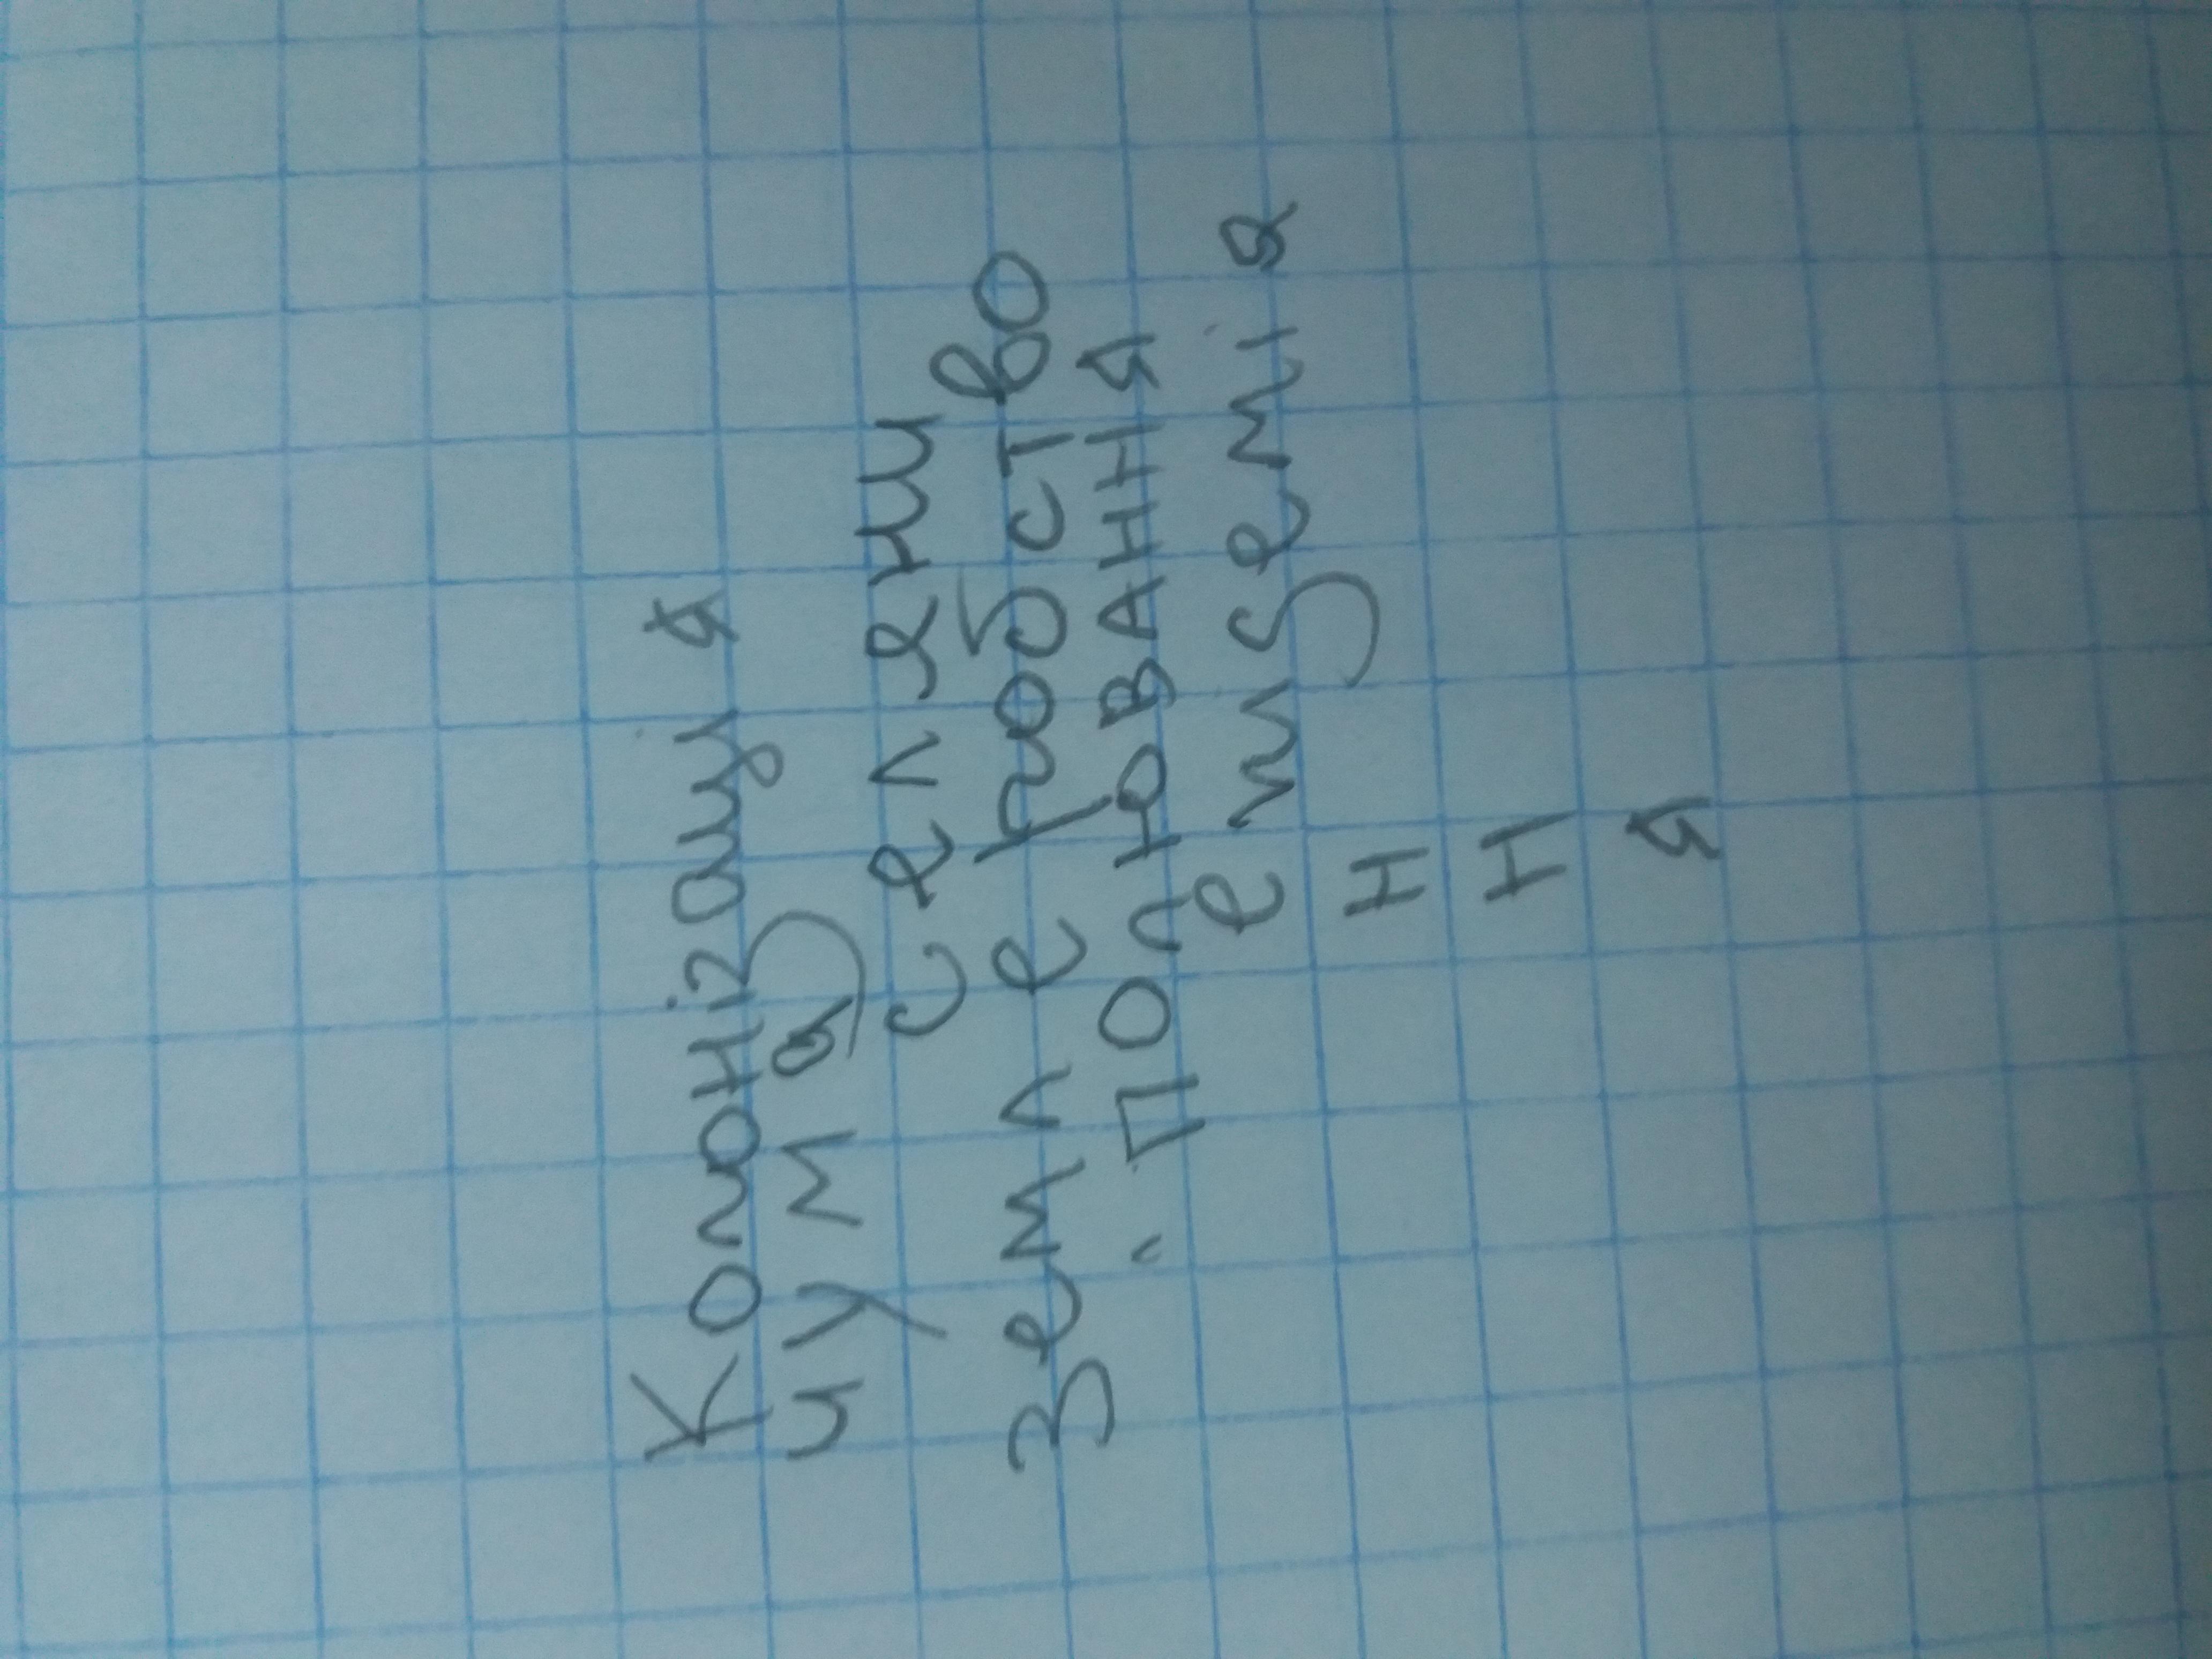 Колонізаці я
чума
селяни
Землеробство
Полювання
епідемія
Н
Н
Я